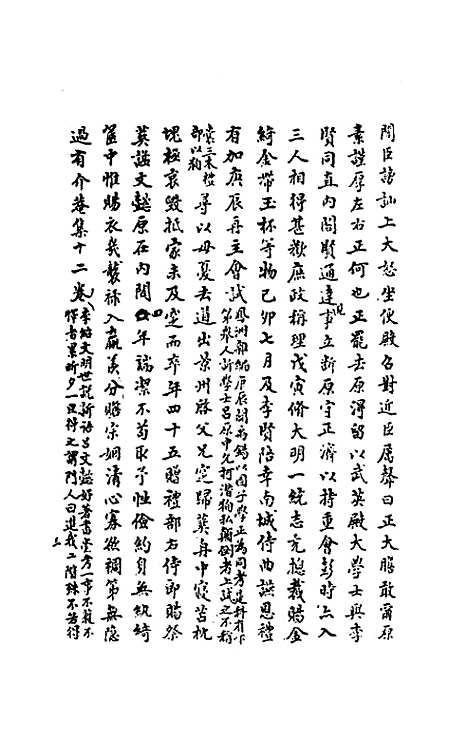 閣臣謗訕上大怒坐便殿召對近臣厲聲曰正大膽敢爾原
素謹厚左右正何也正罷去原得留以武英殿大學士與李
賢同直內閣賢通達事立斷原守正濟以持重會彭時亦入
三人相得甚歡庶政稱理戊寅脩大明一統志充總裁賜金
綺金帶玉杯等物己卯七月及李賢陪幸南城侍曲讌恩禮
有加庚辰再主會試
尋以母憂去道出景州啓父兄窆歸葬舟中寢苫枕
塊極哀毀抵家未及窆而卒年四十五贈禮部右侍郎賜祭
葬諡文懿原在內閣四年端潔不苟取予性儉約身無紈綺
篋中惟賜衣幾襲祿入羸羨分贍宗姻清心寡欲禍第無隱
過有介菴集十二卷